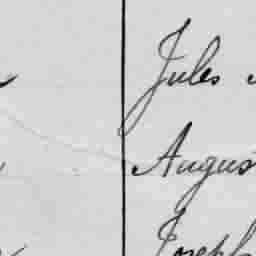 Jules
Augus
Joseph